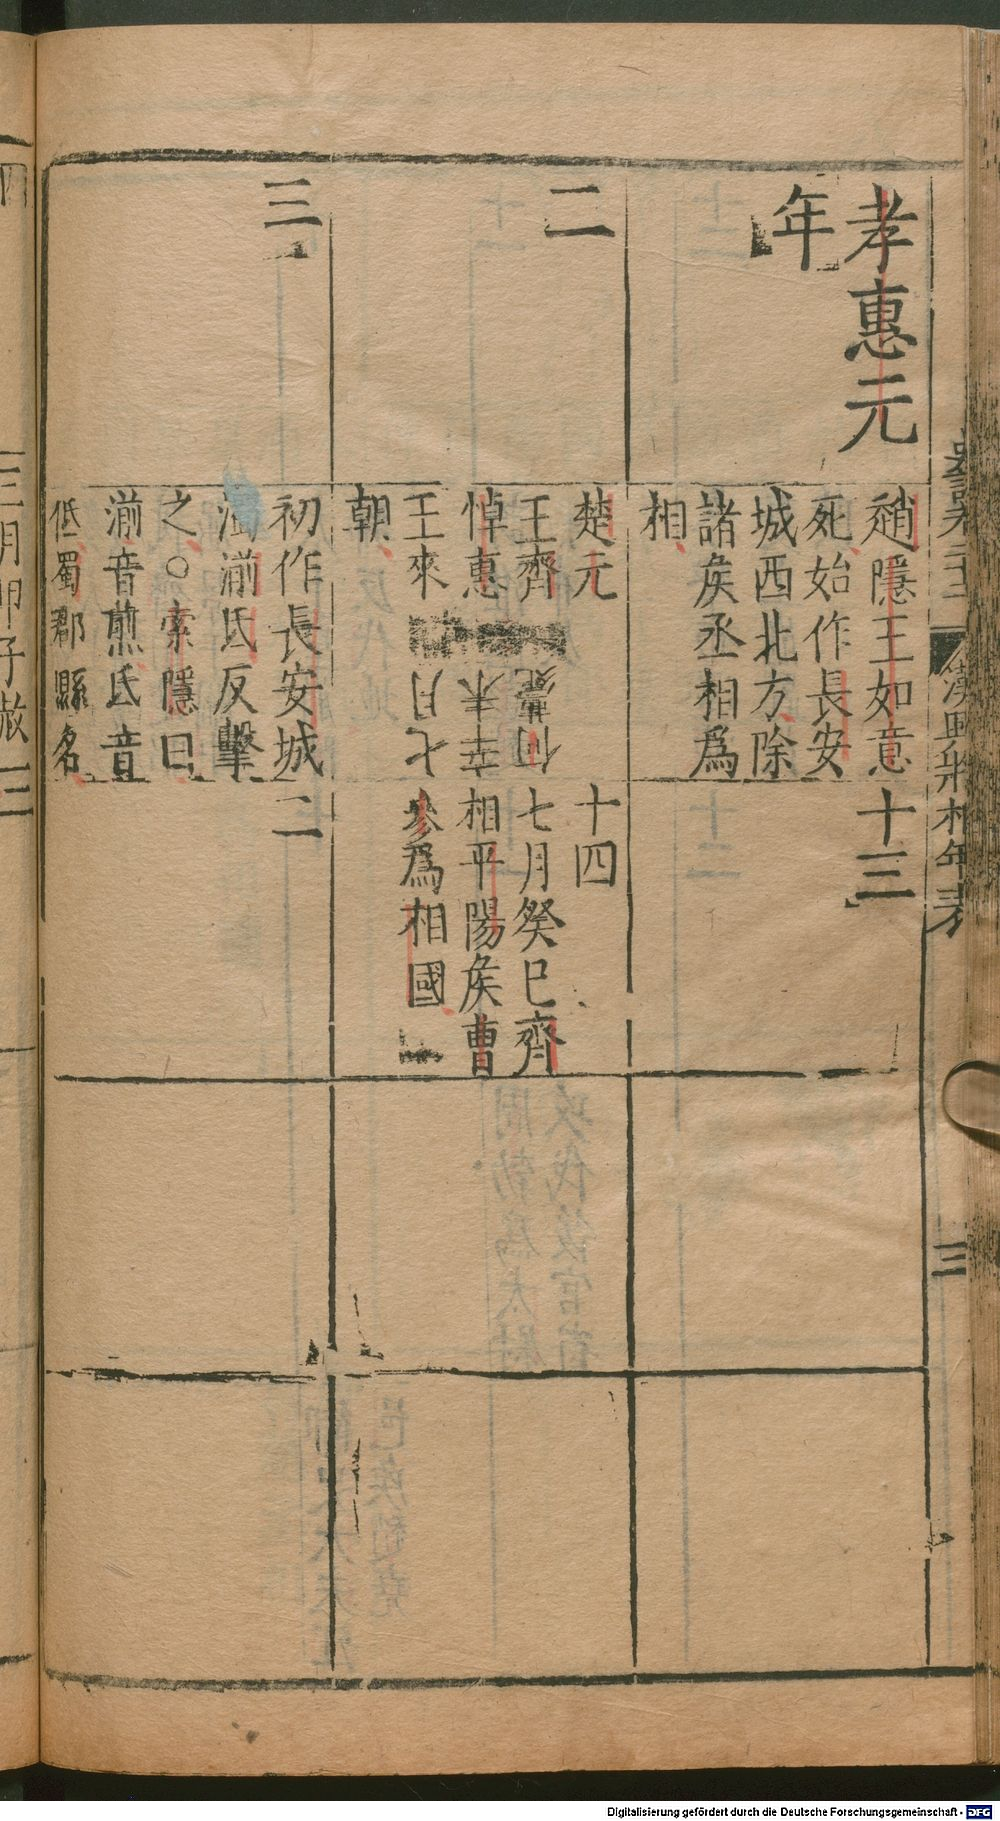 漢興將相年表
三
孝惠元
年
趙隱王如意
死始作長安
城西北方除
諸侯丞相爲
相
十三
二
楚元
王齊
悼惠
王來
朝
七月
辛未
何薨
十四
七月癸巳齊
相平陽侯曹
參爲相國
三
初作長安城
濁湔氐反擊
之○索隱曰
湔音煎氐音
低蜀郡縣名
二
四
三月甲子赦
三
Digitalisierung gefördert durch die Deutsche Forschungsgemeinschaft - DFG